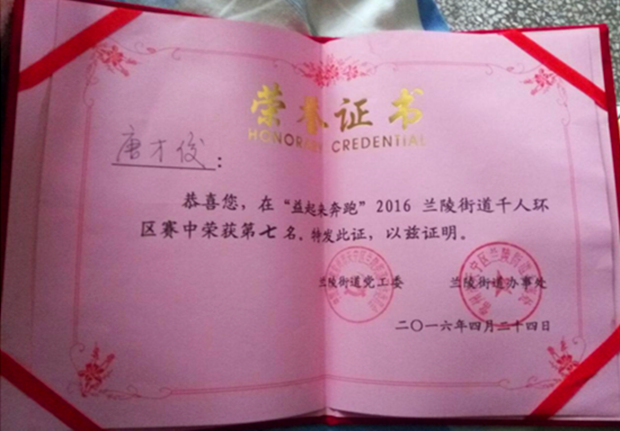 荣誉证书
HONORARY CREDENTIAL
唐才俊：
恭喜您，在“益起来奔跑”2016 兰陵街道千人环
区赛中荣获第七名。特发此证，以兹证明。
兰陵街道党工委 兰陵街道办事处
二〇一六年四月二十四日